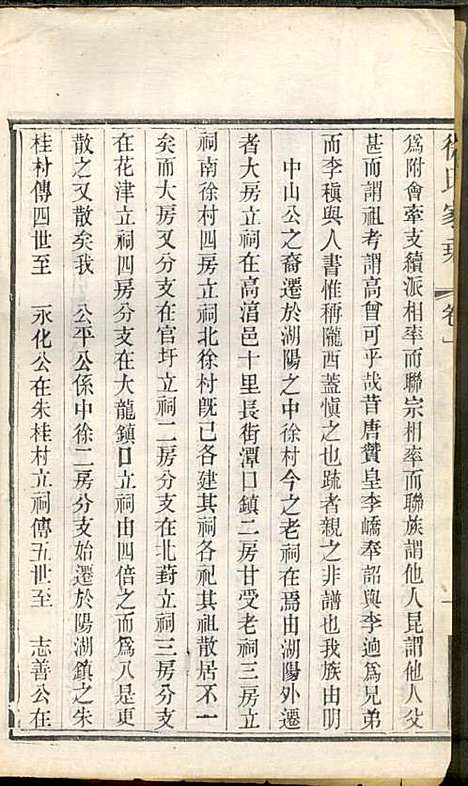 徐氏家乘 卷一
為附會牽支續派相率而聯宗相率而聯族謂他人昆謂他人父
甚而謂祖考謂高曾可乎哉昔唐贊皇李嶠奉詔與李迥為兄弟
而李稹與人書惟稱隴西蓋慎之也疏者親之非譜也我族由明
中山公之裔遷於湖陽之中徐村今之老祠在焉由湖陽外遷
者大房立祠在高湻邑十里長街潭口鎮二房甘受老祠三房立
祠南徐村四房立祠北徐村旣已各建其祠各祀其祖散居不一
矣而大房又分支在官圩立祠二房分支在北葑立祠三房分支
在花津立祠四房分支在大龍鎮口立祠由四倍之而為八是更
散之又散矣我 公平公係中徐二房分支始遷於陽湖鎮之朱
桂村傳四世至 永化公在朱桂村立祠傳五世至 志善公在